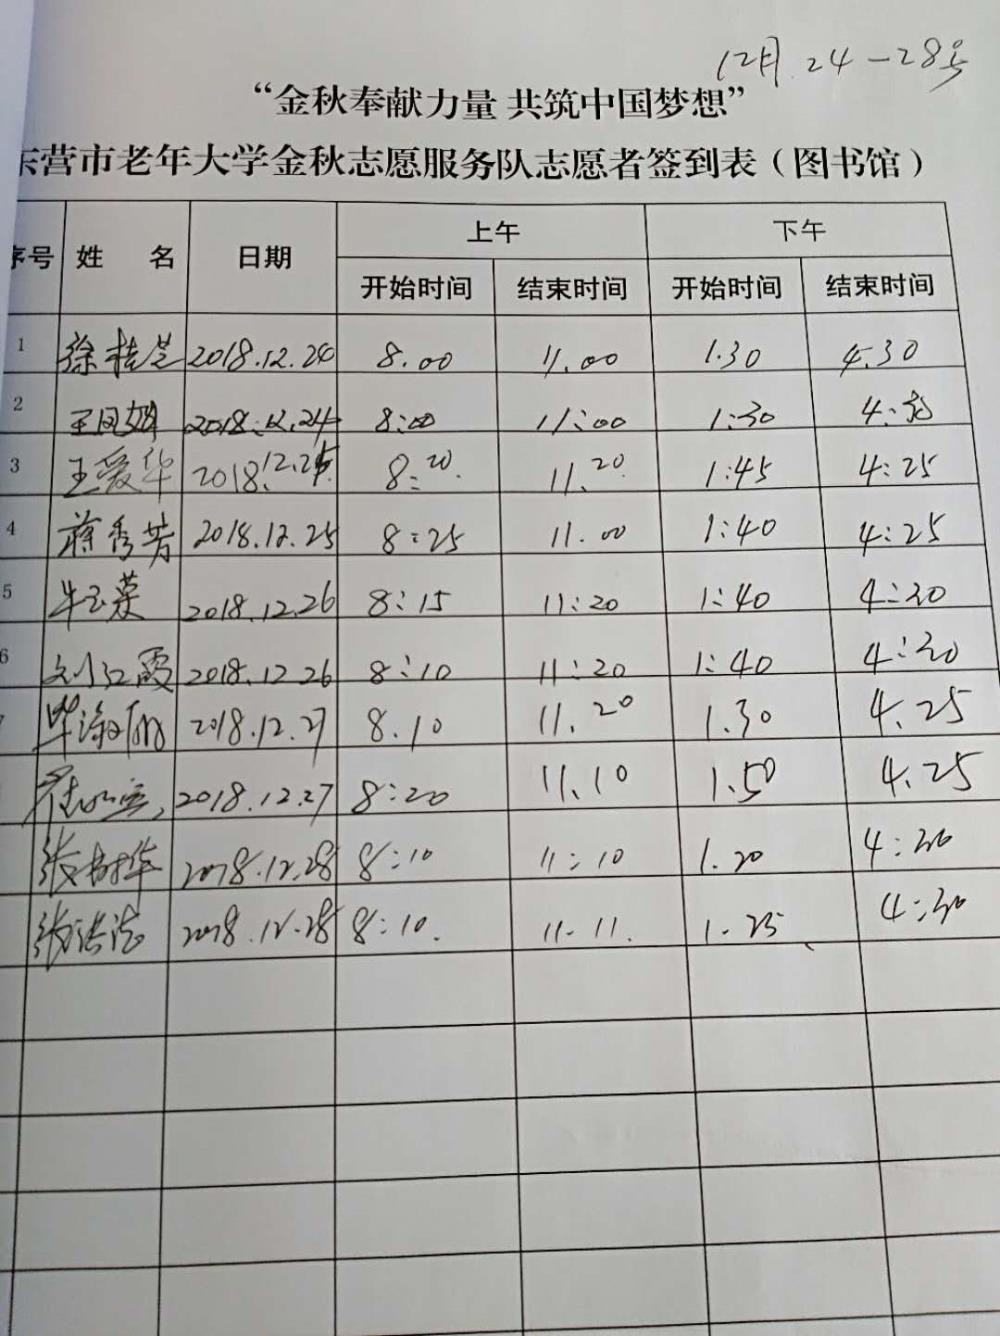 12月.24-28号
“金秋奉献力量 共筑中国梦想”
东营市老年大学金秋志愿服务队志愿者签到表（图书馆）
序号 姓 名 日期 上午 下午
开始时间 结束时间 开始时间 结束时间
1 徐桂芝 2018.12.24 8.00 11.00 1.30 4.30
2 王凤娟 2018.12.24 8:00 11:00 1:30 4:30
3 王爱华 2018.12.25 8:20 11.20 1:45 4:25
4 蒋秀芳 2018.12.25 8:25 11.00 1:40 4:25
5 牛玉英 2018.12.26 8:15 11:20 1:40 4:20
6 刘江霞 2018.12.26 8:10 11:20 1:40 4:20
7 毕淑丽 2018.12.27 8.10 11.20 1.30 4.25
2018.12.27 8:20 11.10 1.50 4.25
张树华 2018.12.28 8:10 11:10 1.20 4:30
2018.12.28 8:10. 11.11. 1.25 4:30